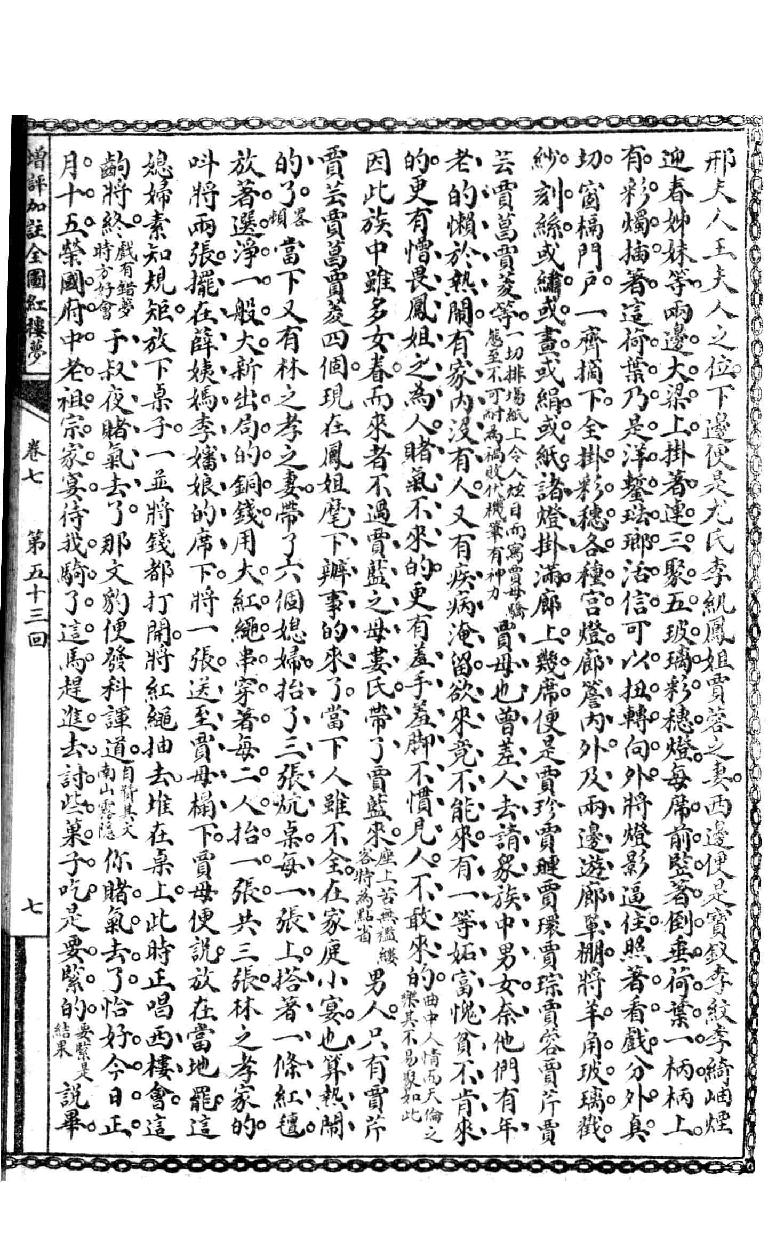 邢夫人王夫人之位下邊便是尤氏李紈鳳姐賈蓉之妻西邊便是寶釵李紋李綺岫煙
迎春姊妹等兩邊大梁上掛著連三聚五玻璃彩穗燈每席前豎著倒垂荷葉一柄柄上
有彩燭插著這荷葉乃是洋鏨琺瑯活信可以扭轉向外將燈影逼住照著看戲分外真
切窗槅門戶一齊摘下全掛彩穗各種宮燈廊簷內外及兩邊遊廊罩棚將羊角玻璃戳
紗刻絲或繡或畫或絹或紙諸燈掛滿廊上幾席便是賈珍賈璉賈環賈琮賈蓉賈芹賈
芸賈菖賈菱等一切排場紙上令人炫目而寫賈母驕惰至不可耐為禍敗代機筆有神力賈母也曾差人去請眾族中男女奈他們有年
老的懶於熱鬧有家內沒有人又有疾病淹留欲來竟不能來有一等妬富愧貧不肯來
的更有憎畏鳳姐之為人賭氣不來的更有羞手羞脚不慣見人不敢來的曲中人情而天倫之樂其不易聚如此
因此族中雖多女眷而來者不過賈藍之母婁氏帶了賈藍來座上苦無襤縷客特為點省男人只有賈芹
賈芸賈菖賈菱四個現在鳳姐麾下辦事的來了當下人雖不全在家庭小宴也算熱鬧
的了畧頓當下又有林之孝之妻帶了六個媳婦抬了三張炕桌每一張上搭著一條紅氊
放著選淨一般大新出局的銅錢用大紅繩串穿著每二人抬一張共三張林之孝家的
叫將兩張擺在薛姨媽李嬸娘的席下將一張送至賈母榻下賈母便說放在當地罷這
媳婦素知規矩放下桌子一並將錢都打開將紅繩抽去堆在桌上此時正唱西樓會這
齣將終戲有錯夢時方好會于叔夜賭氣去了那文豹便發科諢道自贊其文南山霧隱你賭氣去了恰好今日正
月十五榮國府中老祖宗家宴待我騎了這馬趕進去討些菓子吃是要緊的要緊是結果說畢
增評加註全圖紅樓夢
卷七　第五十三回
七